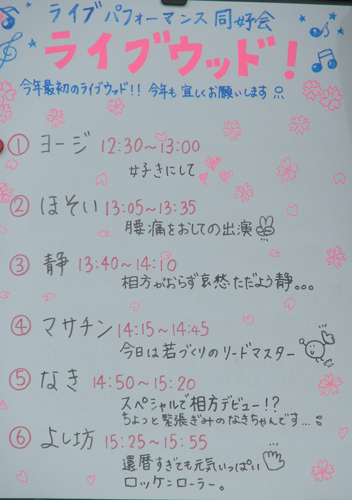 ライブパフォーマンス同好会
ライブウッド!
今年最初のライブウッド!! 今年も宜しくお願いします
① ヨージ 12:30~13:00
好きにして
② ほそい 13:05~13:35
腰痛をおしての出演
③ 静 13:40~14:10
相方がおらず哀愁ただよう静。。。
④ マサチン 14:15~14:45
今日は若づくりのリードマスター
⑤ なき 14:50~15:20
スペシャルで相方デビュー!?
ちょっと緊張ぎみのなきちゃんです...
⑥ よし坊 15:25~15:55
還暦すぎても元気いっぱい
ロッケンローラー。